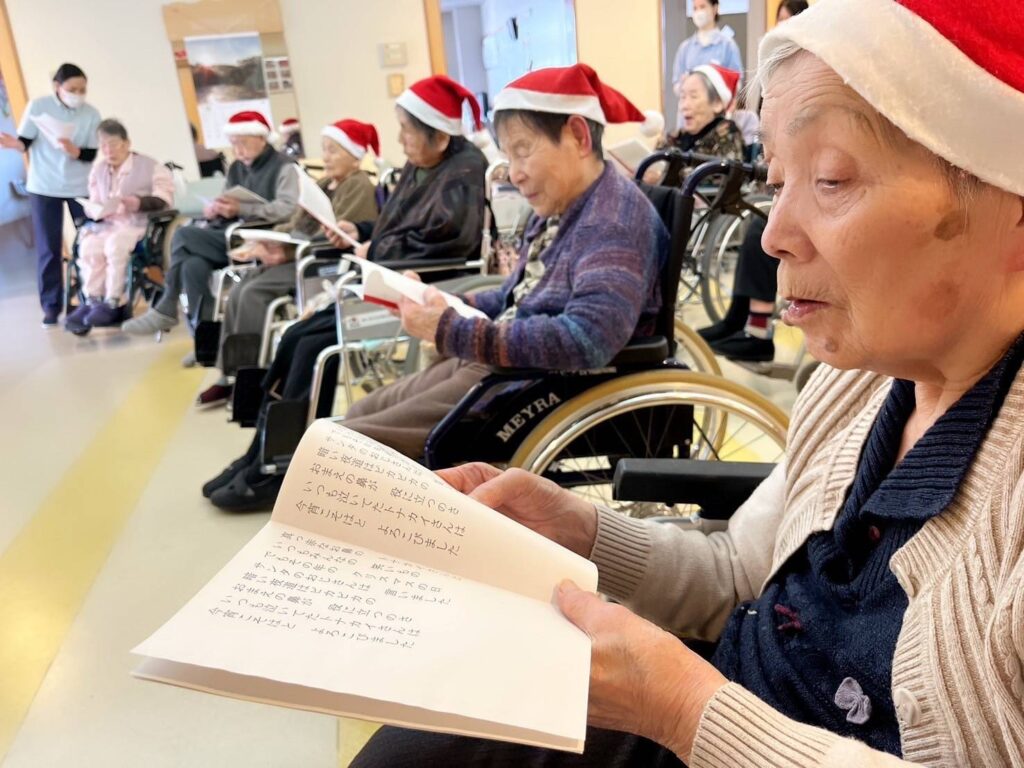 サンタのおじさんは
暗い夜道はピカピカの
おまえの鼻が　役に立つのさ
いつも泣いてたトナカイさんは
今宵こそはと　よろこびました
真っ赤なお鼻の
いつもみんなの　笑いもの
でもその年の　クリスマスの日
サンタのおじさんは　言いました
暗い夜道はピカピカの
おまえの鼻が　役に立つのさ
いつも泣いてたトナカイさんは
今宵こそはと　よろこびました
MEYRA